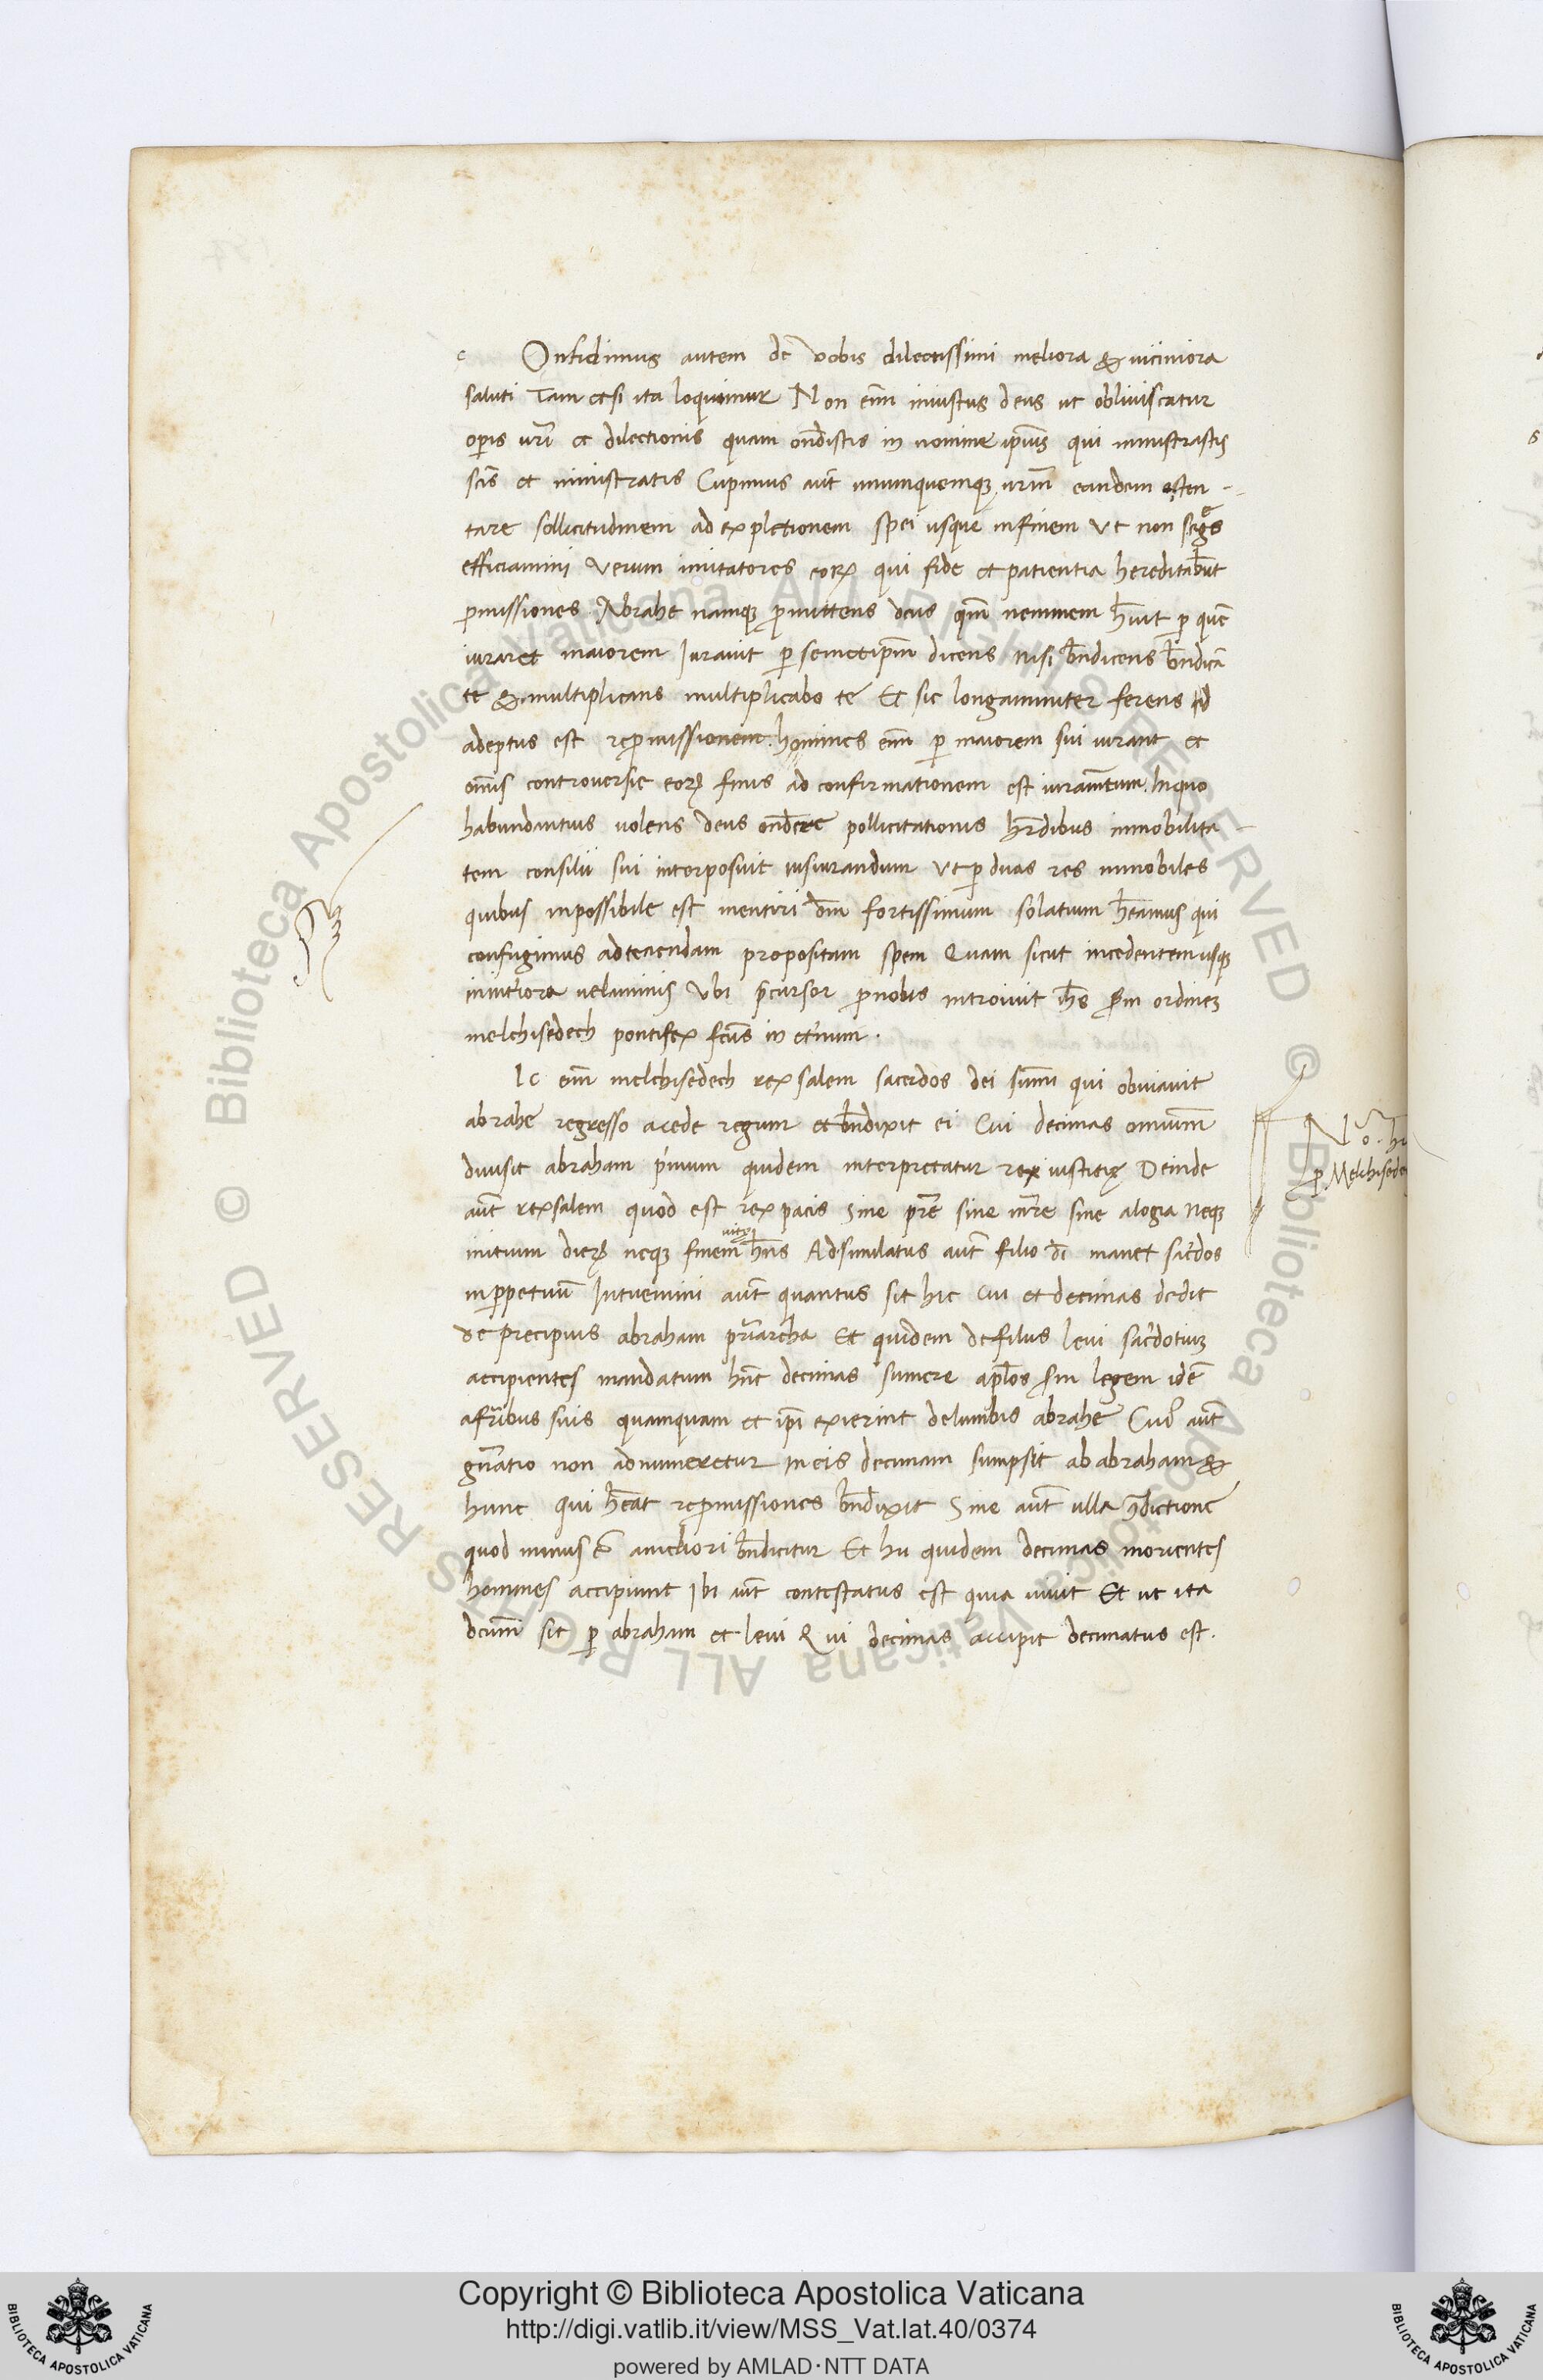 c Onfidimus autem de vobis dilectissimi meliora & viciniora
saluti Tam etsi ita loquimur Non em̄ iniustus deus ut obliviscatur
op̄is vr̄i et dilectionis quam on̄distis in nomine ip̄ius qui ministrastis
sc̄is et ministratis Cupimus aūt unumquemq vrm̄ eandem osten-
tare sollicitudinem ad expletionem spei usque infinem Ut non segēs
efficiamini Verum imitatores eoꝝ qui fide et patientia hereditab̄ut
p̄missiones Abrahe namq p̄mittens deus qm̄ neminem h̄uit ꝑ quē
iuraret maiorem Iuravit ꝑ semetip̄m dicens nisi b̄ndicens b̄ndicā
te & multiplicans multiplicabo te Et sic longanimiter ferens id
adeptus est rep̄missionem. homines em̄ ꝑ maiorem sui iurant et
om̄is controversie eoꝝ finis ad confirmationem est iuram̄tum. In quo
habundantius volens deus on̄dere pollicitationis h̄rdibus immobilita-
tem consilii sui interposuit iusiurandum Ut ꝑ duas res immobiles
quibus inpossibile est mentiri dm̄ fortissimum solatium h̄eamus qui
confugimus adtenendam propositam spem Quam sicut incedentem usq
in int̄iora velaminis Ubi p̄cursor p̄nobis introivit ih̄s sm̄ ordinem
melchisedech pontifex fc̄us in et̄num.
Ic em̄ melchisedech rex salem sacerdos dei sum̄i qui obviavit
abrahe regresso acede regum et b̄ndixit ei Cui decimas omnium̄
divisit abraham p̄mum quidem interpretatur rex iusticię Deinde
aūt rex salem quod est rex pacis Sine pr̄e sine mr̄e sine alogia Neq
initium dieꝝ neq finem vitę h̄ns Adsimilatus aūt filio di manet sac̄dos
inꝑpetuū Intuemini aūt quantus sit hic Cui et decimas dedit
de precipuis abraham pr̄iarcha Et quidem defiliis levi sac̄dotium
accipientes mandatum hn̄t decimas sumere ap̄los sm̄ legem idē
afr̄ibus suis quamquam et ip̄i exierint delumbis abrahe Cuiꝰ aūt
gn̄ratio non adnumeretur in eis decimam sumpsit ab abraham &
hunc qui h̄eāt rep̄missiones b̄ndixit Sine aūt ulla ꝯdictione
quod minus ē ameliori b̄ndicitur Et hii quidem decimas morientes
homines accipiunt Ibi aūt contestatus est quia vivit Et ut ita
dc̄um sit ꝑ abraham et levi Qui decimas accipit decimatus est.
No. hi
ꝑ Melchisedec
Copyright © Biblioteca Apostolica Vaticana
http://digi.vatlib.it/view/MSS_Vat.lat.40/0374
powered by AMLAD·NTT DATA
BIBLIOTECA APOSTOLICA VATICANA
BIBLIOTECA APOSTOLICA VATICANA
© Biblioteca Apostolica Vaticana ALL RIGHTS RESERVED
© Biblioteca Apostolica Vaticana ALL RIGHTS RESERVED